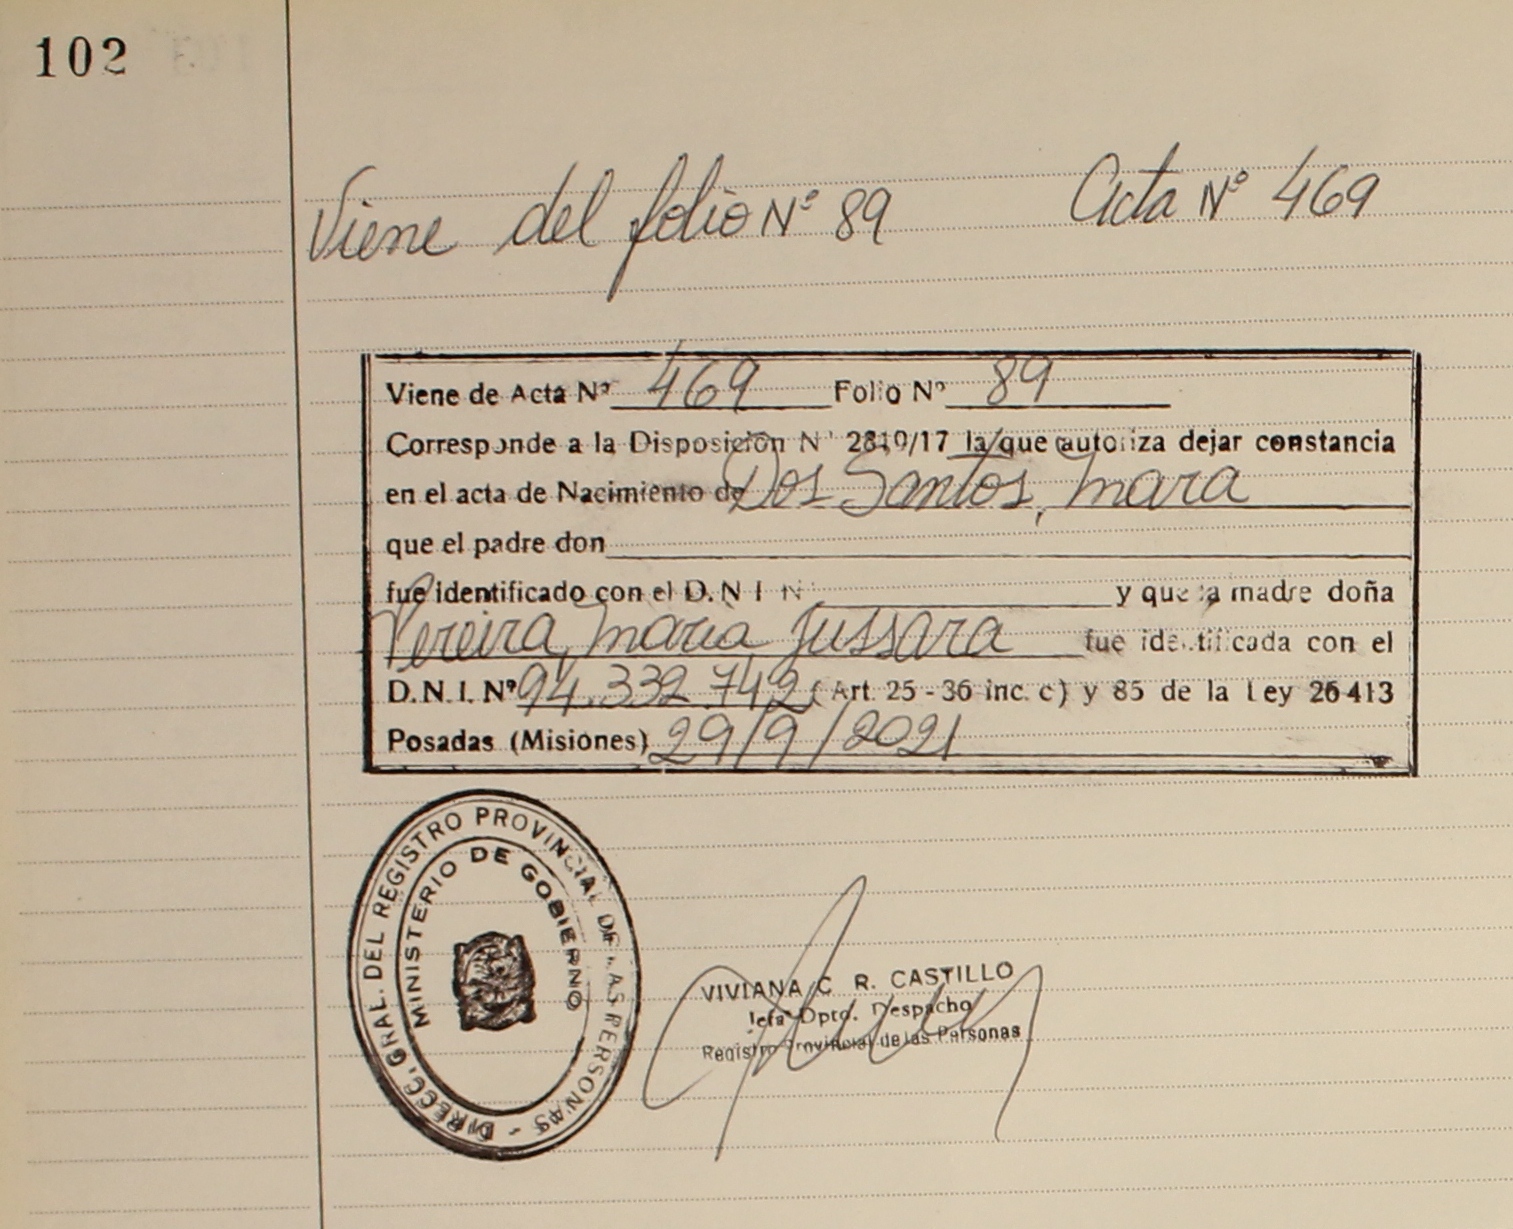 102
Viene del folio N° 89 Acta N° 469
Viene de Acta N° 469 Folio N° 89
Corresponde a la Disposición N° 2810/17 la que autoriza dejar constancia
en el acta de Nacimiento de Dos Santos, Mara
que el padre don
fue identificado con el D.N.I N° y que la madre doña
Pereira, Maria Jussara fue identificada con el
D.N.I. N° 94.332.742 (Art. 25 - 36 inc. c) y 85 de la Ley 26413
Posadas (Misiones) 29/9/2021
DIRECC. GRAL. DEL REGISTRO PROVINCIAL DE LAS PERSONAS -
MINISTERIO DE GOBIERNO
VIVIANA C. R. CASTILLO
Jefa Dpto. Despacho
Registro Provincial de las Personas